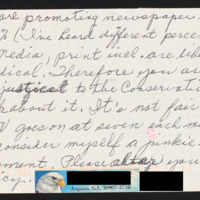 ore promoting newspaper
% (I've heard different perce
Media, print incl. are lib
dical. Therefore, you are
justical to the Conservati
k about it. It's not fair
goes on at seven each m
consider myself a junkie
ment. Please alter you
cy.
Augusta, GA 30907-3738